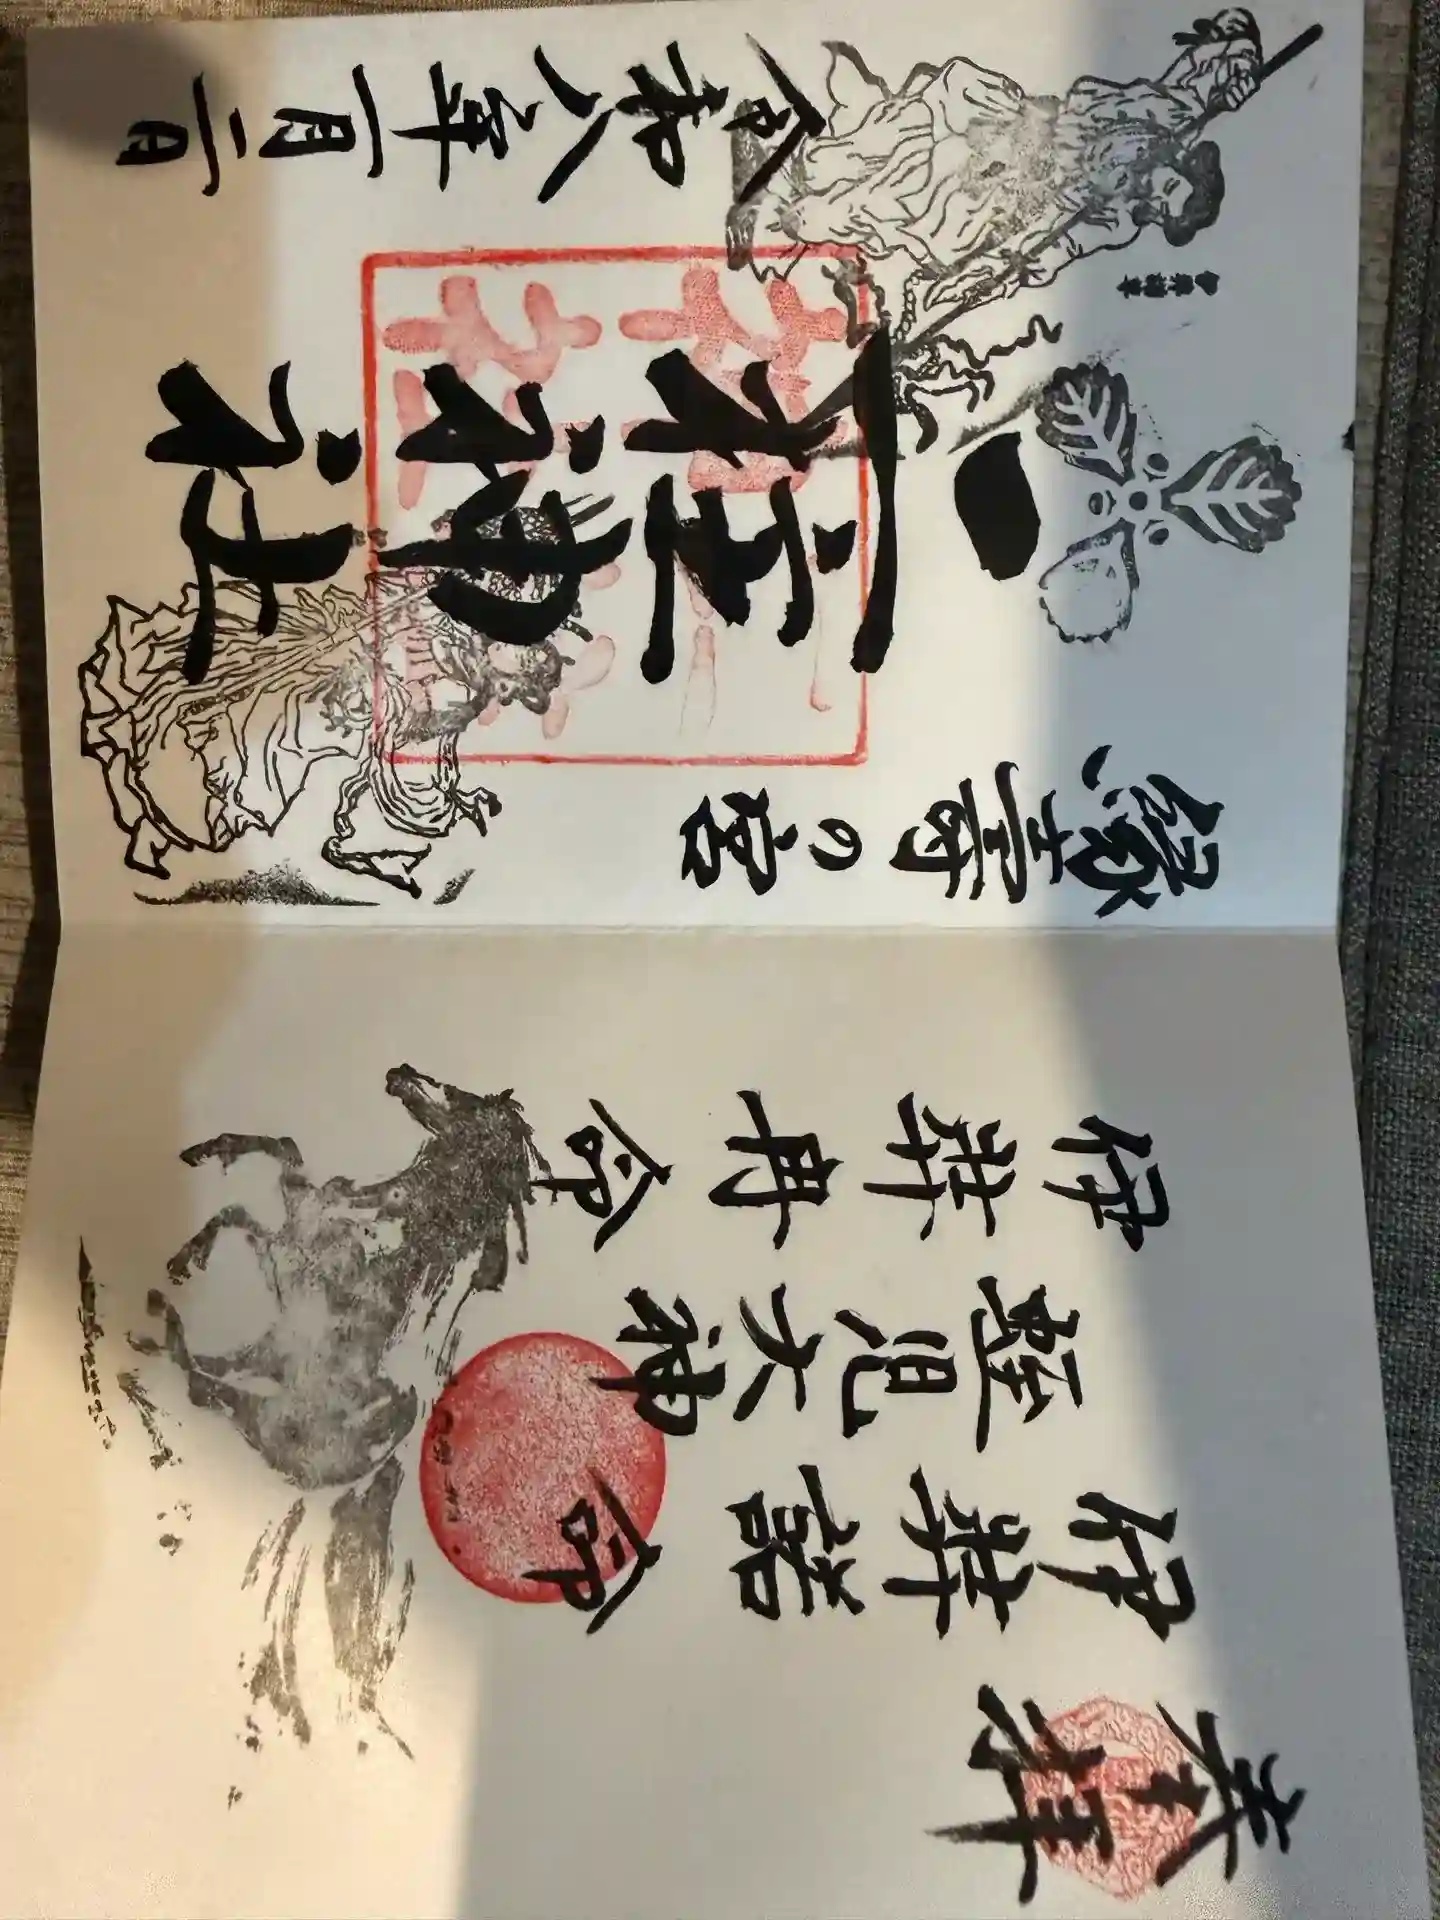 奉拝
伊弉諾命
蛭児大神
伊弉冉命
縁壽の宮
二柱神社
令和八年一月二日